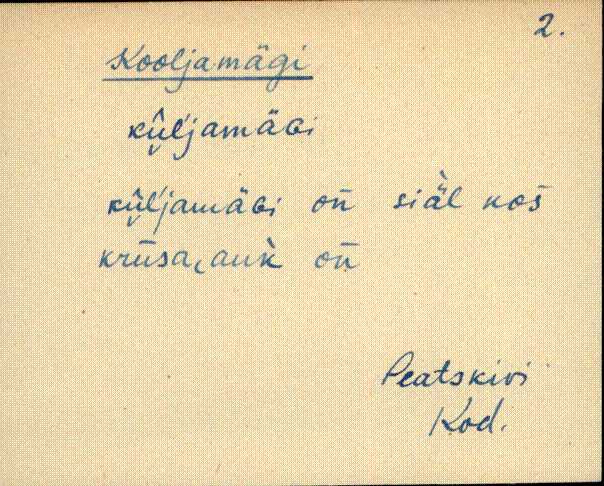 2.
Kooljamägi
kṷ̂ĺjamäGi
kṷ̂ĺjamäGi oñ siä̀l kos
krūsa‿auk̀ oñ
Peatskivi
Kod.